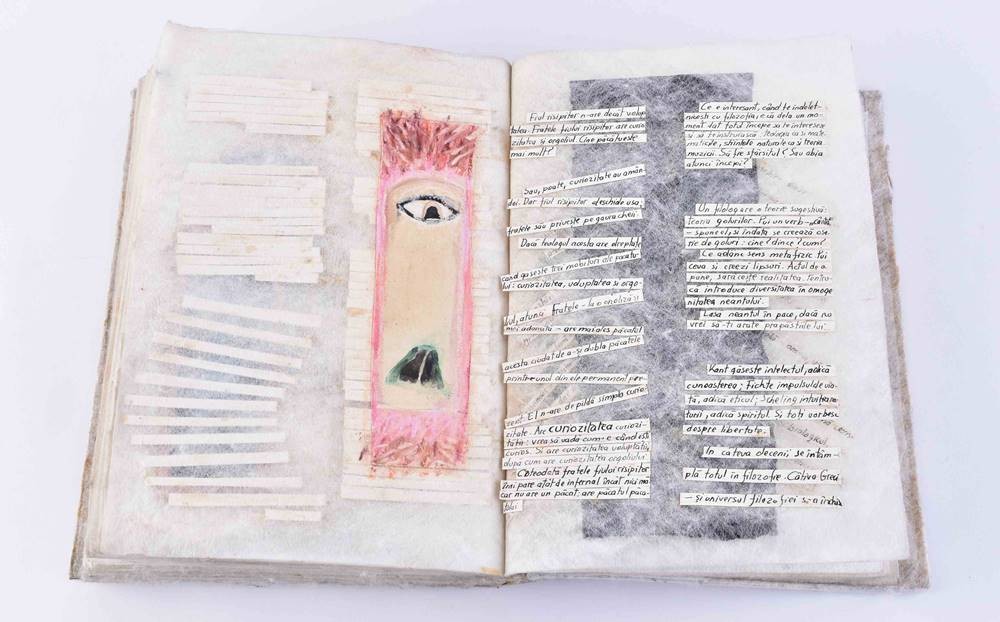 Fiul risipitor n-are decât volup
tatea. Fratele fiului risipitor are curio
zitatea și orgoliul. Cine păcătuește
mai mult?
Sau, poate, curiozitate au amân
doi. Dar fiul risipitor deschide usa,
fratele sau privește pe gaura cheii.
Dacă teologul acesta are dreptate
cand găseste trei mobiluri ale păcatu-
lui: curiozitatea, voluptatea si orgo-
liul, atunci fratele - la o analiză și
mai adâncită - are mai ales păcatul
acesta ciudat de a-și dubla păcatele
printr-unul din ele permanent pre-
zent. El n-are de pildă simpla curio-
zitate. Are curiozitatea curiozi-
tății: vrea să vadă cum e când ești
curios. Si are curiozitatea voluptății,
după cum are curiozitatea orgoliului.
Câteodată fratele fiului risipitor
îmi pare atat de infernal încât nici mă
car nu are un păcat: are păcatul păca-
tului.
Ce e interesant, când te îndelet-
nicesti cu filozofia, e că dela un mo-
ment dat totul începe sa te intereseze
și să te instruiască. Teologia ca si mate
maticile, stiintele naturale ca si teoria
muzicii. Să fie sfârsitul? Sau abia
atunci începi?
Un filolog are o teorie sugestivă:
teoria golurilor. Pui un verb
- spune el, si îndata se creează ose-
rie de goluri: cine? de ce? cum?
Ce adânc sens metafizic Pui
ceva si creezi lipsuri. Actul de a
pune, sărăcește realitatea. Pentru
că introduce diversitatea în omoge
nitatea neantului.
Lasa neantul în pace, dacă nu
vrei sa-ti arate prapastiile lui.
Kant găseste intelectul, adică
cunoasterea; Fichte impulsul de via-
ta, adică eticul; Scheling intuitia na-
turii, adică spiritul. Si toti vorbesc
despre libertate.
In cateva decenii, se întâm-
plă totul în filozofie. Câtiva Greci
- și universul filozofiei s-a închis
biologicul.